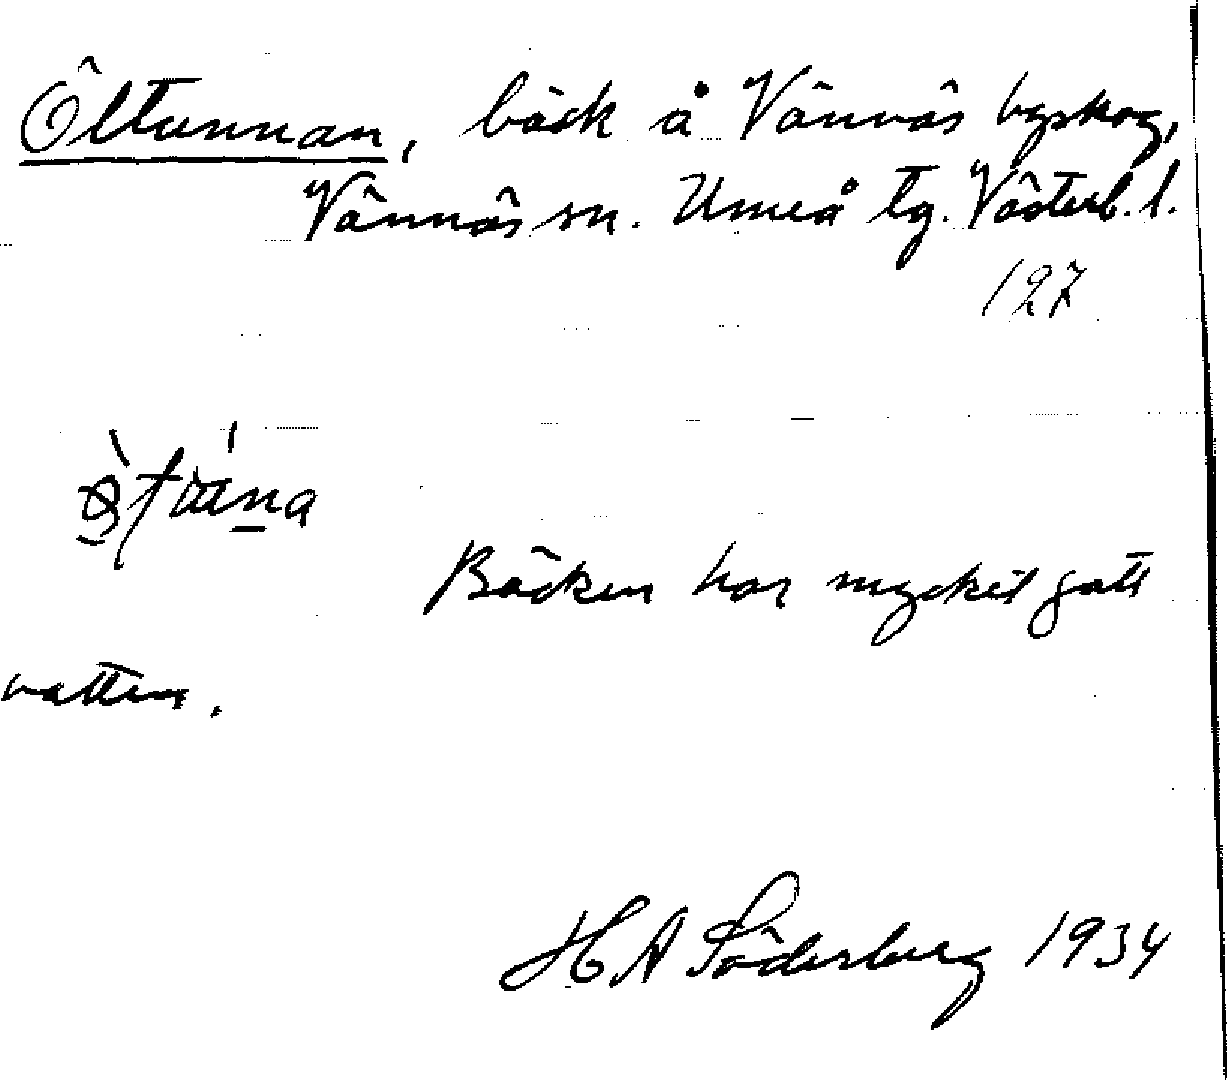 Öltunnan, bäck å Vännäs byskog,
Vännäs sn. Umeå tg. Västerb. l.
127
Bäcken har mycket gott
vatten.
H A Söderberg 1934